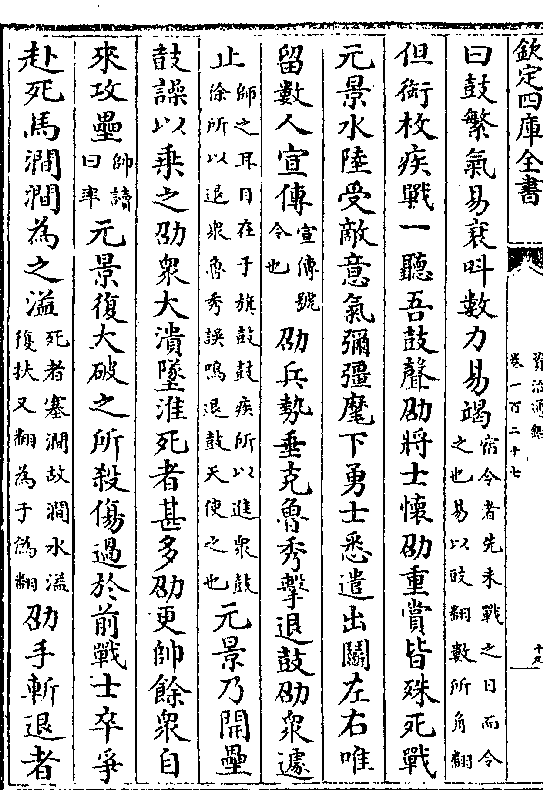 欽定四庫全書
資治通鑑
卷一百二十七
曰鼓繁氣易衰呌數力易竭宿令者先未戰之日而令之也易以豉翻數所角翻
但銜枚疾戰一聽吾鼓聲劭將士懷劭重賞皆殊死戰
元景水陸受敵意氣彌彊麾下勇士悉遣出鬬左右唯
留數人宣傳宣傳號令也劭兵勢垂克魯秀擊退鼓劭衆遽
止師之耳目在于旗鼓鼓疾所以進衆鼓徐所以退衆魯秀誤鳴退鼓天使之也元景乃開壘
鼓譟以乗之劭衆大潰墜淮死者甚多劭更帥餘衆自
來攻壘帥讀曰率元景復大破之所殺傷過於前戰士卒爭
赴死馬澗澗為之溢死者塞澗故澗水溢復扶又翻為于偽翻劭手斬退者